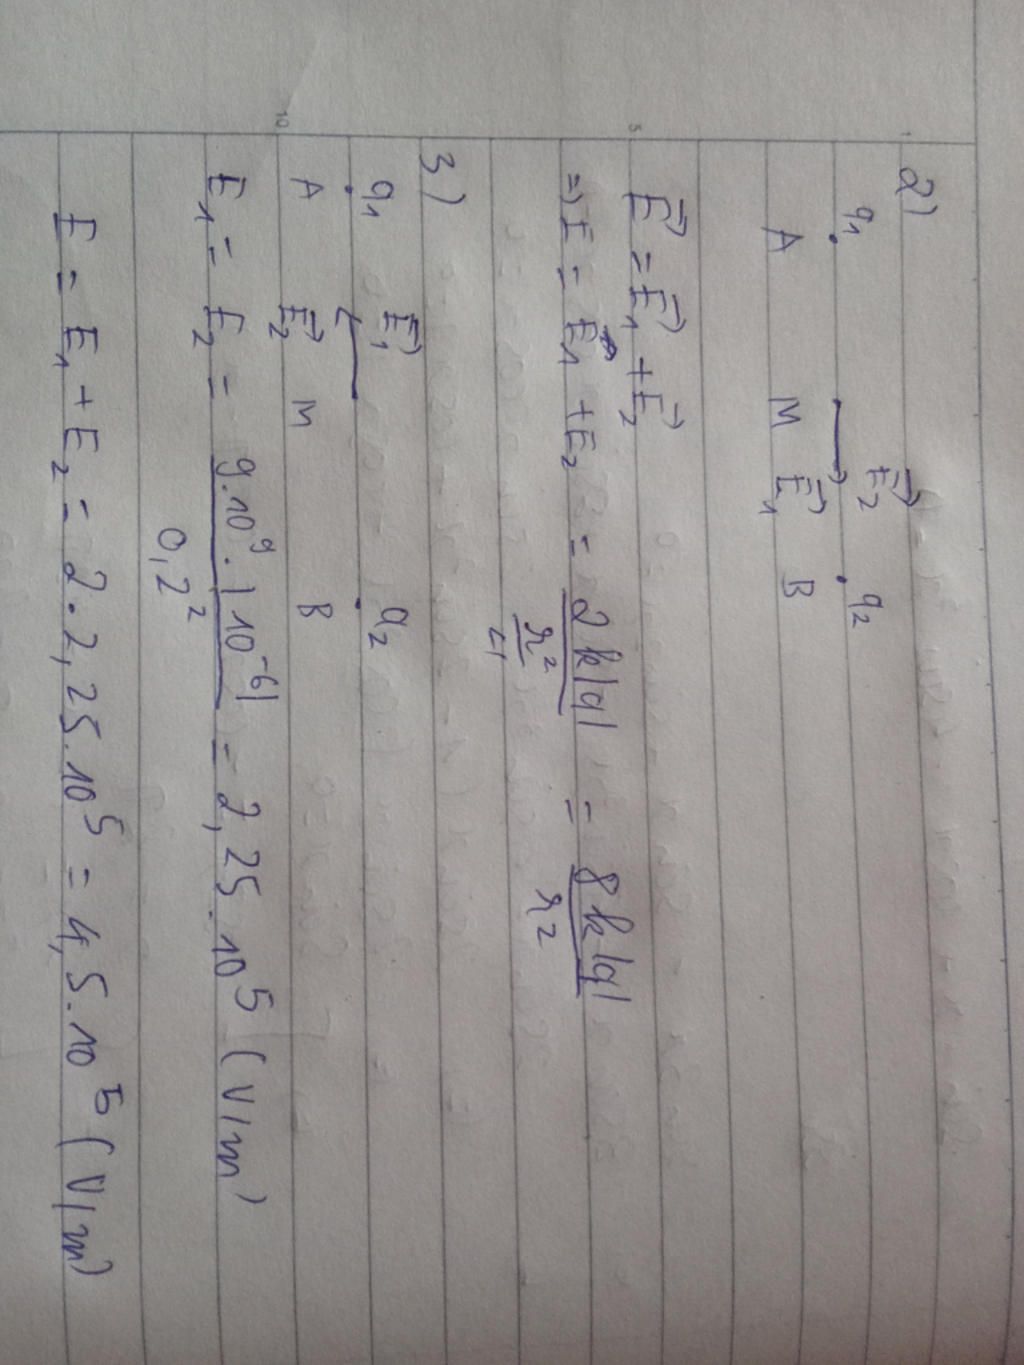 1
2)
q₁ E₂⃗ q₂
A M E₁⃗ B
5
E⃗ = E₁⃗ + E₂⃗
=> E = E₁ + E₂ = 2k|q| / (r²/4) = 8k|q| / r²
3)
q₁ E₁⃗ q₂
A E₂⃗ M B
10
E₁ = E₂ = 9.10⁹.|10⁻⁶| / 0,2² = 2,25.10⁵ (V/m)
E = E₁ + E₂ = 2.2,25.10⁵ = 4,5.10⁵ (V/m)